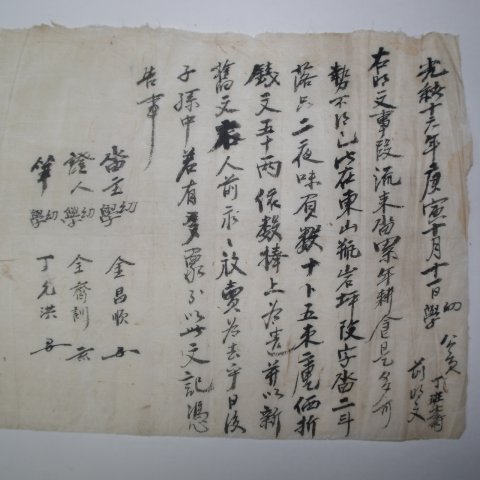 光緖十六年庚寅十月十二日幼學
前明文
右明文事段流來畓累年耕食是多可
勢不得已此在東山甁岩坪段字畓二斗
落只二夜味負數十卜五束廛価折
錢文五十兩依數捧上爲遣並以新
舊文右人前永永放賣爲去乎日後
子孫中若有 以此文記憑
告事
畓主幼學 金昌
證人幼學 全齊訓
筆 幼學 丁允洪